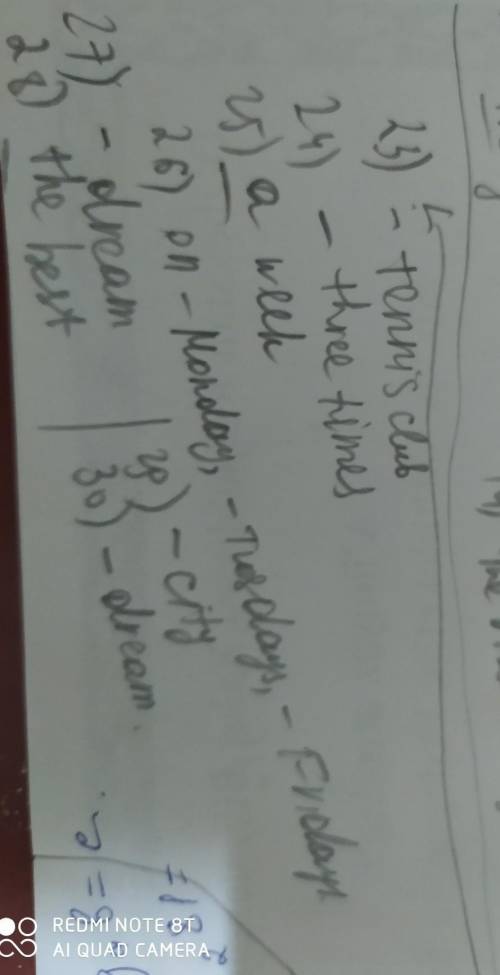 23) - tennis club
24) - three times
25) a week
26) on - Monday, - Tusdays, - Fridays
27) - dream
28) the best
29) - city
30) - dream.
REDMI NOTE 8T
AI QUAD CAMERA